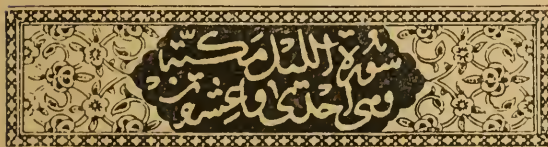 سورة الليل مكية
وهي احدى وعشرون